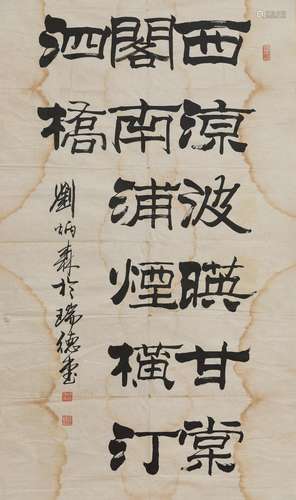 西涼波暎甘棠
閣南浦煙橫汀
泗橋
劉炳森於瑞德堂